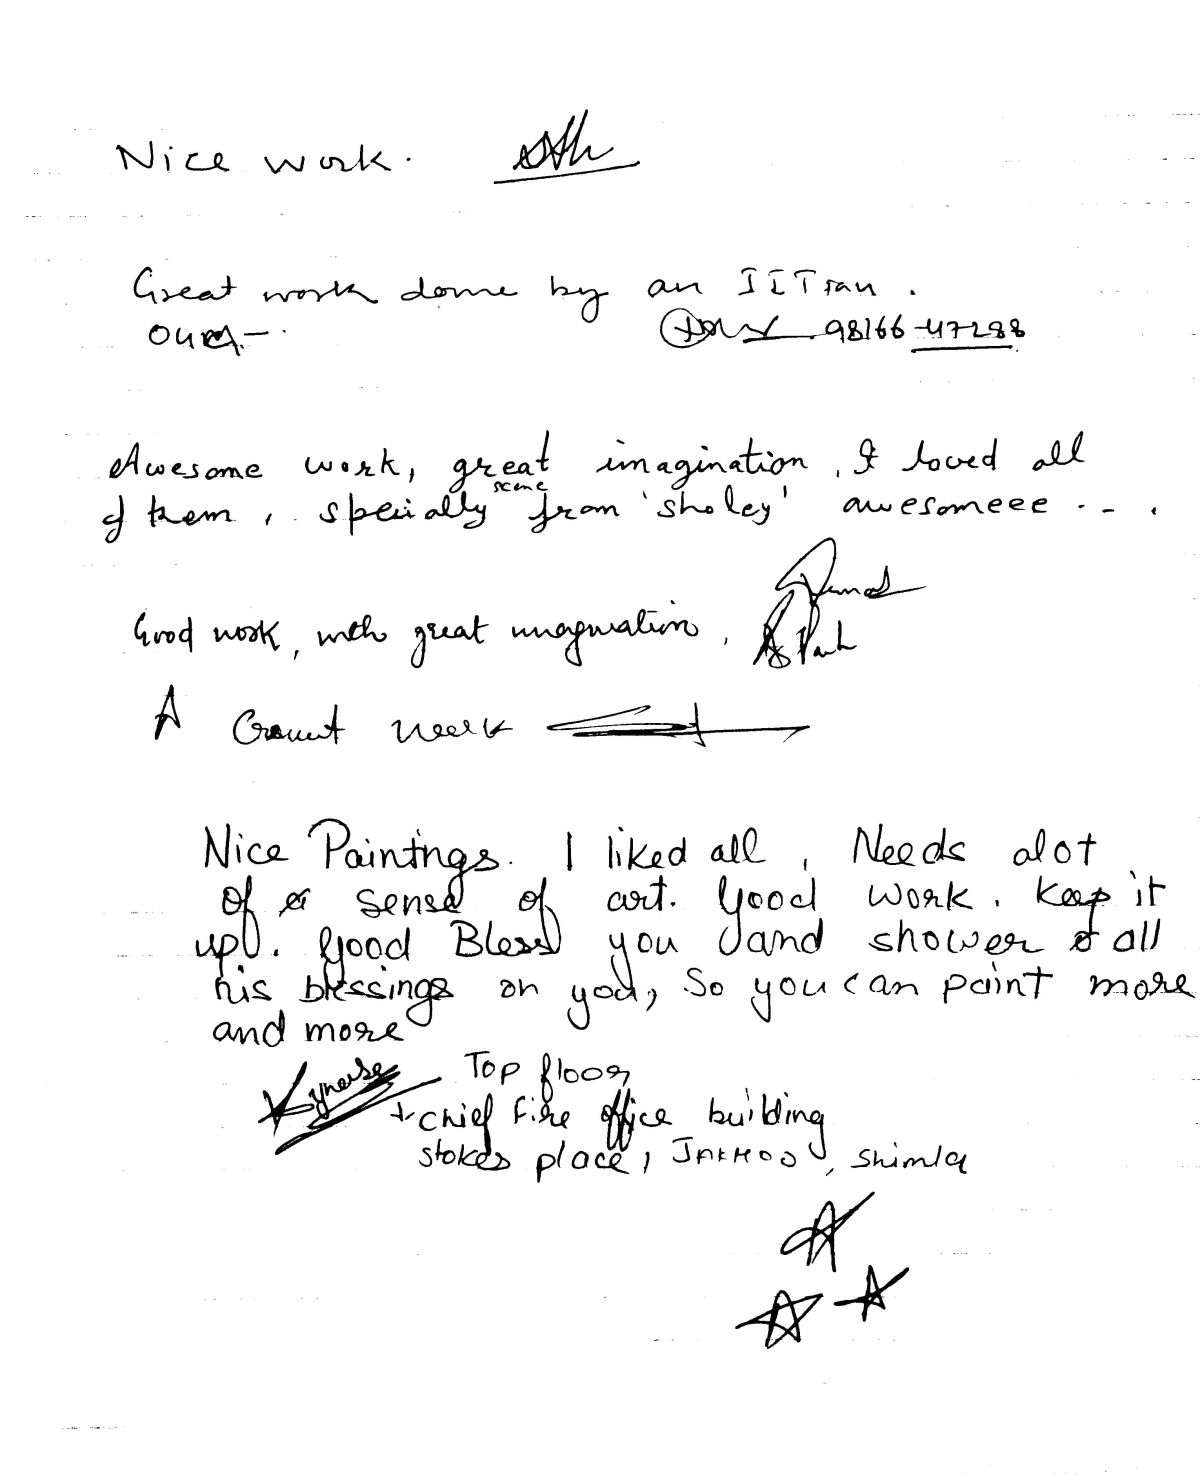 Nice work.
Great work done by an IITian.
98166-47288
Awesome work, great imagination, I loved all
of them, specially scene from 'sholey' awesomeee ....
Good work, with great imagination,
A Great work
Nice Paintings. I liked all, Needs alot
of a sense of art. Good work. Keep it
up. Good Bless you and shower all
his blessings on you, So you can paint more
and more
Top floor,
Chief Fire office building
stokes place, JAKHOO, Shimla